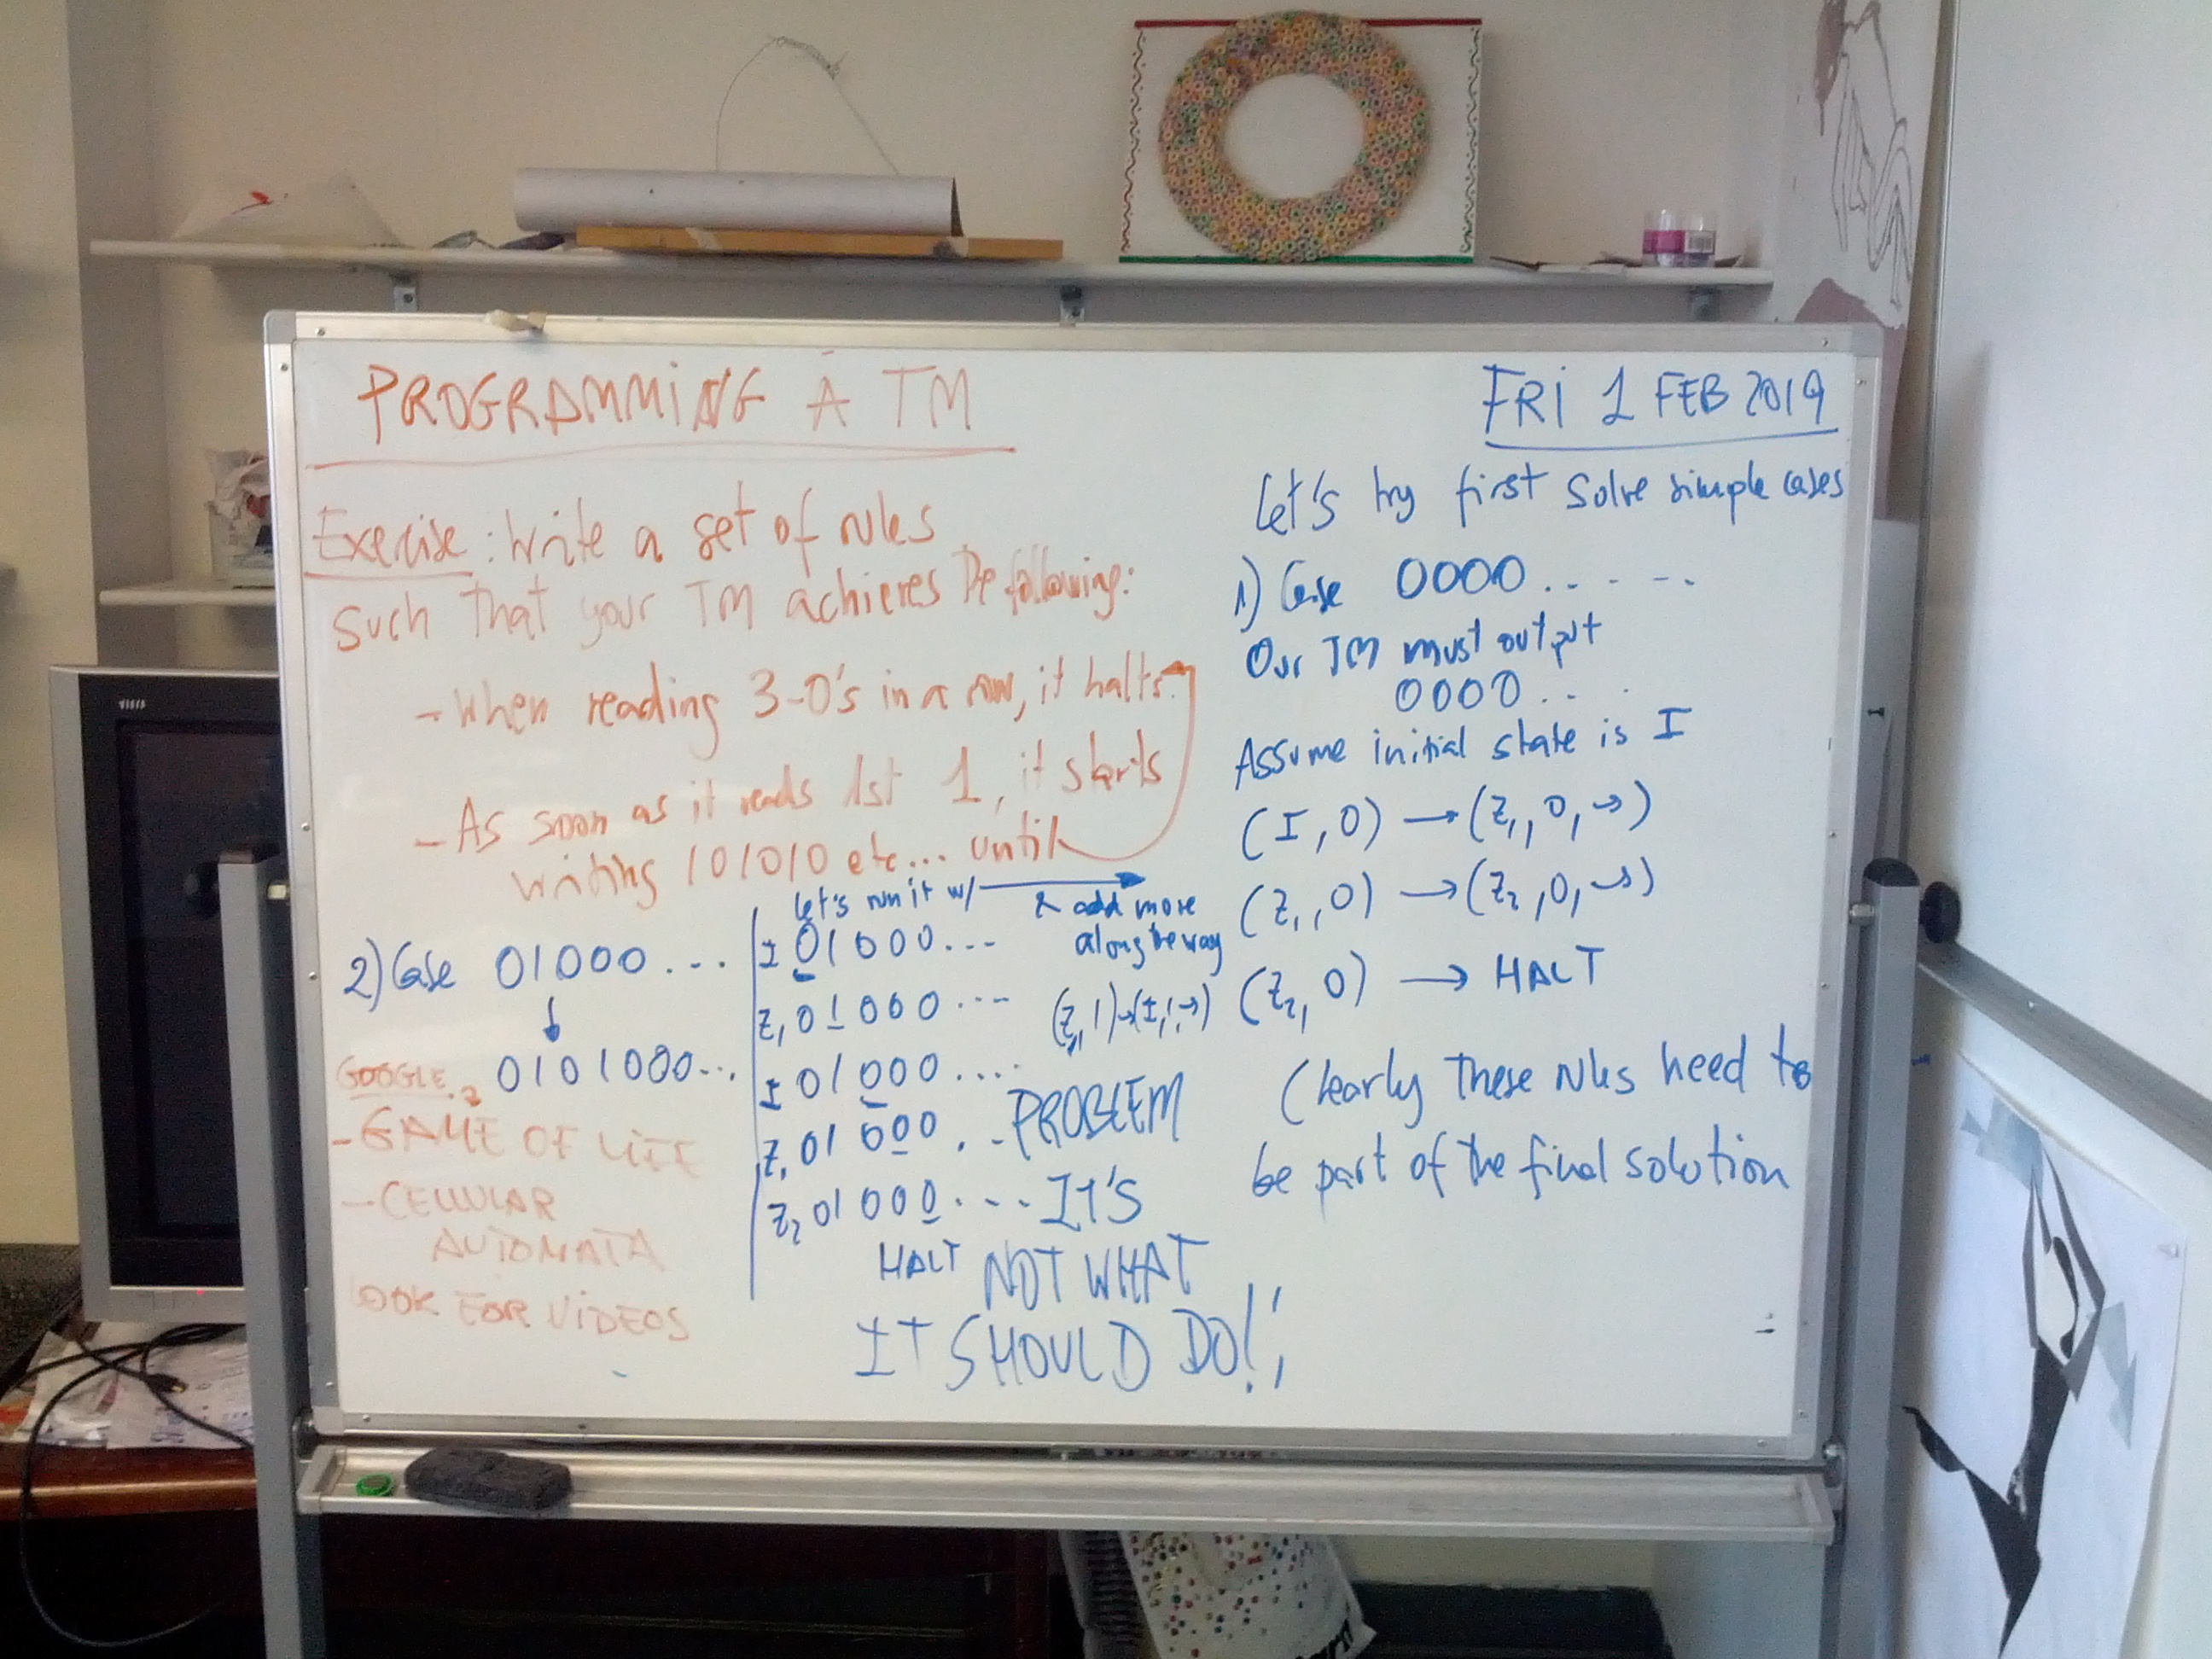 PROGRAMMING A TM
Exercise: Write a set of rules
such that your TM achieves the following:
- When reading 3-0's in a row, it halts.
- As soon as it reads 1st 1, it starts
writing 101010 etc... until
FRI 1 FEB 2019
Let's try first solve simple cases
1) Case 0000.....
Our TM must output
0000...
Assume initial state is I
(I, 0) → (Z1, 0, →)
(Z1, 0) → (Z2, 0, →)
(Z2, 0) → HALT
Clearly these rules need to
be part of the final solution
2) Case 01000...
↓
0101000...
Let's run it w/ → & add more
along the way
I 01000...
Z1 01000... (Z1, 1) → (I, 1, →)
I 01000....
Z1 01000... PROBLEM
Z2 01000... IT'S
HALT NOT WHAT
IT SHOULD DO!!
GOOGLE
- GAME OF LIFE
- CELLULAR
AUTOMATA
LOOK FOR VIDEOS